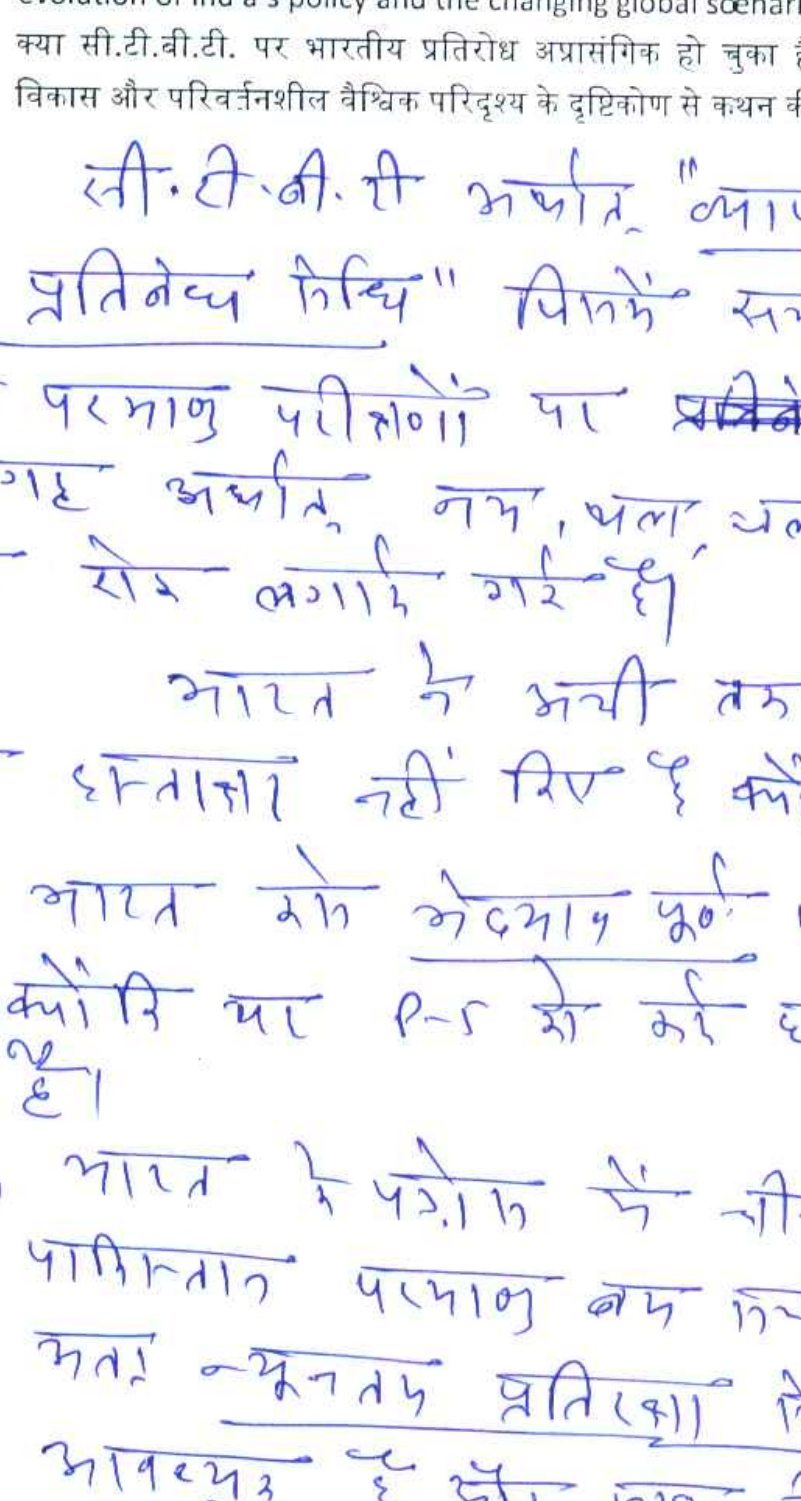 evolution of India's policy and the changing global scenari
क्या सी.टी.बी.टी. पर भारतीय प्रतिरोध अप्रासंगिक हो चुका है
विकास और परिवर्तनशील वैश्विक परिदृश्य के दृष्टिकोण से कथन की
सी.टी.बी.टी अर्थात् "व्याप
प्रतिबंध संधि" जिसमें
परमाणु परीक्षणों पर
अर्थात् नभ, थल, जल
रोक लगाई गई है।
भारत ने अभी तक
हस्ताक्षर नहीं किए है क्यों
भारत इसे भेदभाव पूर्ण
क्योंकि यह P-5 को कई
है।
भारत के पड़ोस में ची
पाकिस्तान परमाणु बम
अतः न्यूनतम प्रतिरक्षा
आवश्यक है और